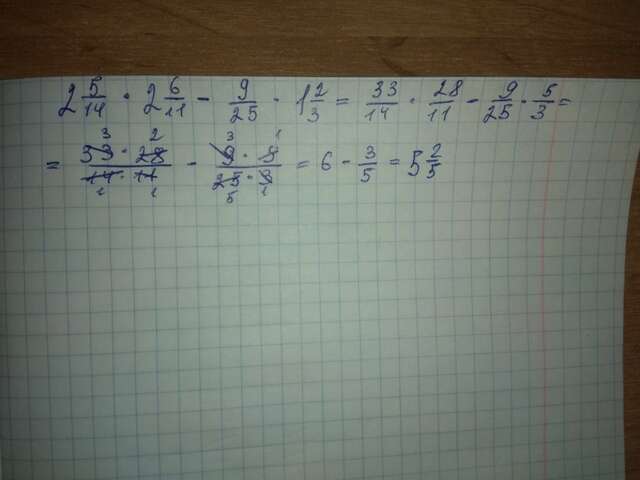 2 5/14 · 2 6/11 - 9/25 · 1 2/3 = 33/14 · 28/11 - 9/25 · 5/3 =
= 33 · 28 / 14 · 11 - 9 · 5 / 25 · 3 = 6 - 3/5 = 5 2/5